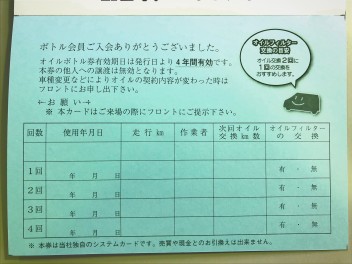 ボトル会員ご入会ありがとうございました。
オイルボトル券有効期日は発行日より4年間有効です。
本券の他人への譲渡は無効となります。
車種変更などによりオイルの契約内容が変わった時は
フロントにお申し出下さい。
←お願い→
※ 本カードはご来場の際にフロントにご提示下さい。
オイルフィルター
交換の目安
オイル交換2回に
1回の交換を
おすすめします。
回数 使用年月日 走行km 作業者 次回オイル交換km数 オイルフィルターの交換
1回 年 月 日 有・無
2回 年 月 日 有・無
3回 年 月 日 有・無
4回 年 月 日 有・無
※ 本券は当社独自のシステムカードです。売買や現金とのお引換えは出来ません。